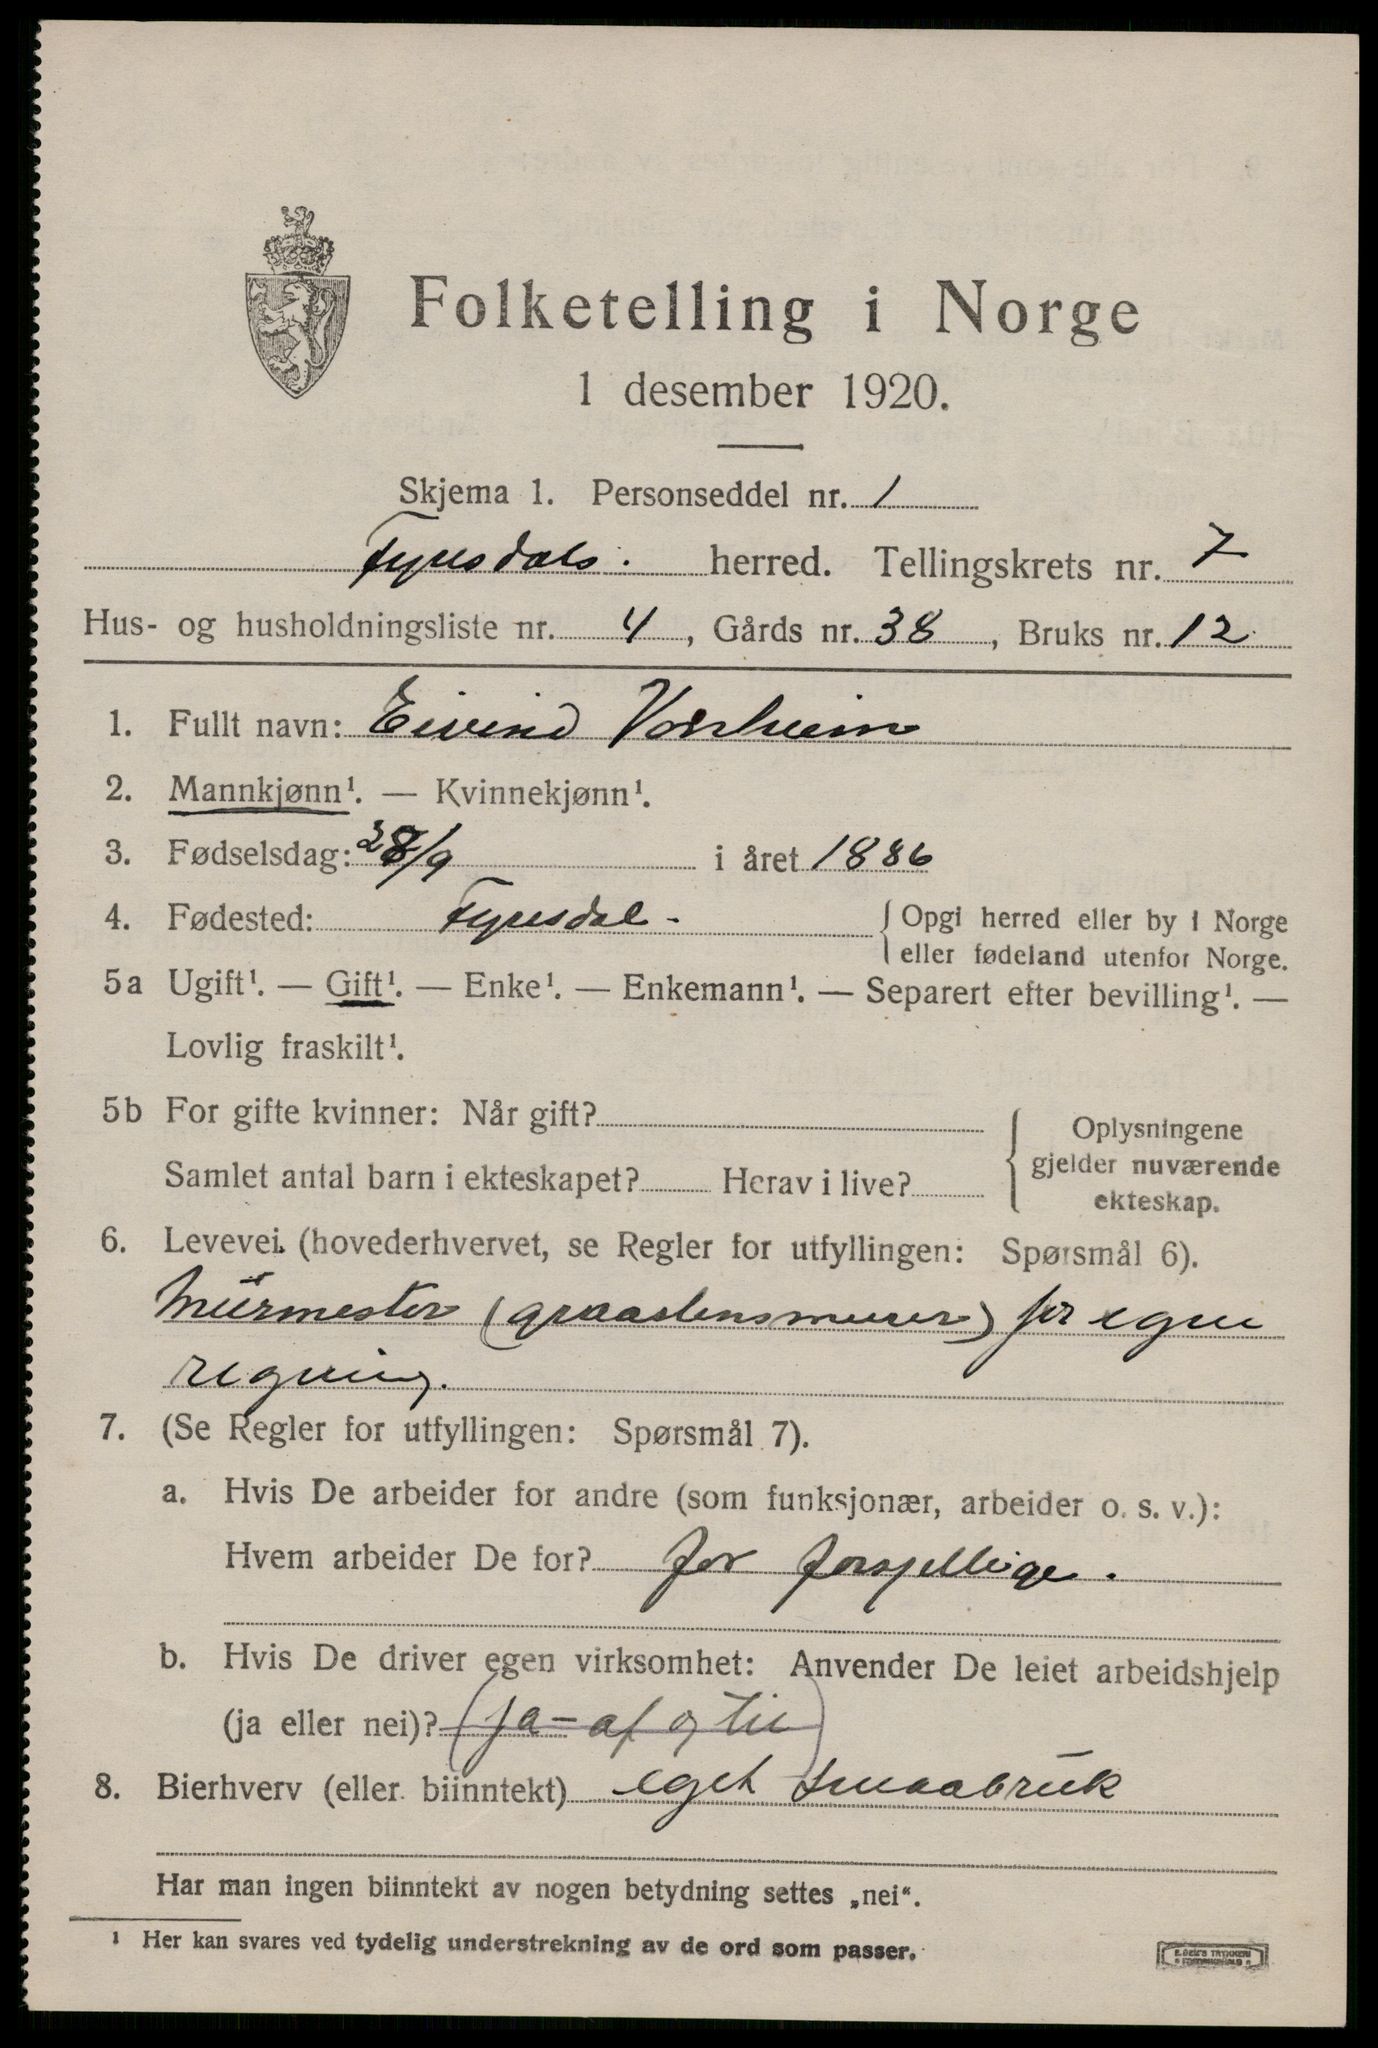 Folketelling i Norge
1 desember 1920.
Skjema 1. Personseddel nr. 1
Fyresdals. herred. Tellingskrets nr. 7
Hus- og husholdningsliste nr. 4, Gårds nr. 38, Bruks nr. 12
1. Fullt navn: Eivind
2. Mannkjønn¹. — Kvinnekjønn¹.
3. Fødselsdag: 28/9 i året 1886
4. Fødested: Fyresdal - { Opgi herred eller by i Norge
eller fødeland utenfor Norge.
5a Ugift¹. — Gift¹. — Enke¹. — Enkemann¹. — Separert efter bevilling¹. —
Lovlig fraskilt¹.
5b For gifte kvinner: Når gift? { Oplysningene
gjelder nuværende
ekteskap.
Samlet antal barn i ekteskapet? Herav i live?
6. Levevei (hovederhvervet, se Regler for utfyllingen: Spørsmål 6).
Murmester (graastensmurer) for egen
regning.
7. (Se Regler for utfyllingen: Spørsmål 7).
a. Hvis De arbeider for andre (som funksjonær, arbeider o. s. v.):
Hvem arbeider De for? for forsjellige.
b. Hvis De driver egen virksomhet: Anvender De leiet arbeidshjelp
(ja eller nei)? (ja - af og til)
8. Bierhverv (eller biinntekt) eget smaabruk
Har man ingen biinntekt av nogen betydning settes „nei“.
¹ Her kan svares ved tydelig understrekning av de ord som passer.